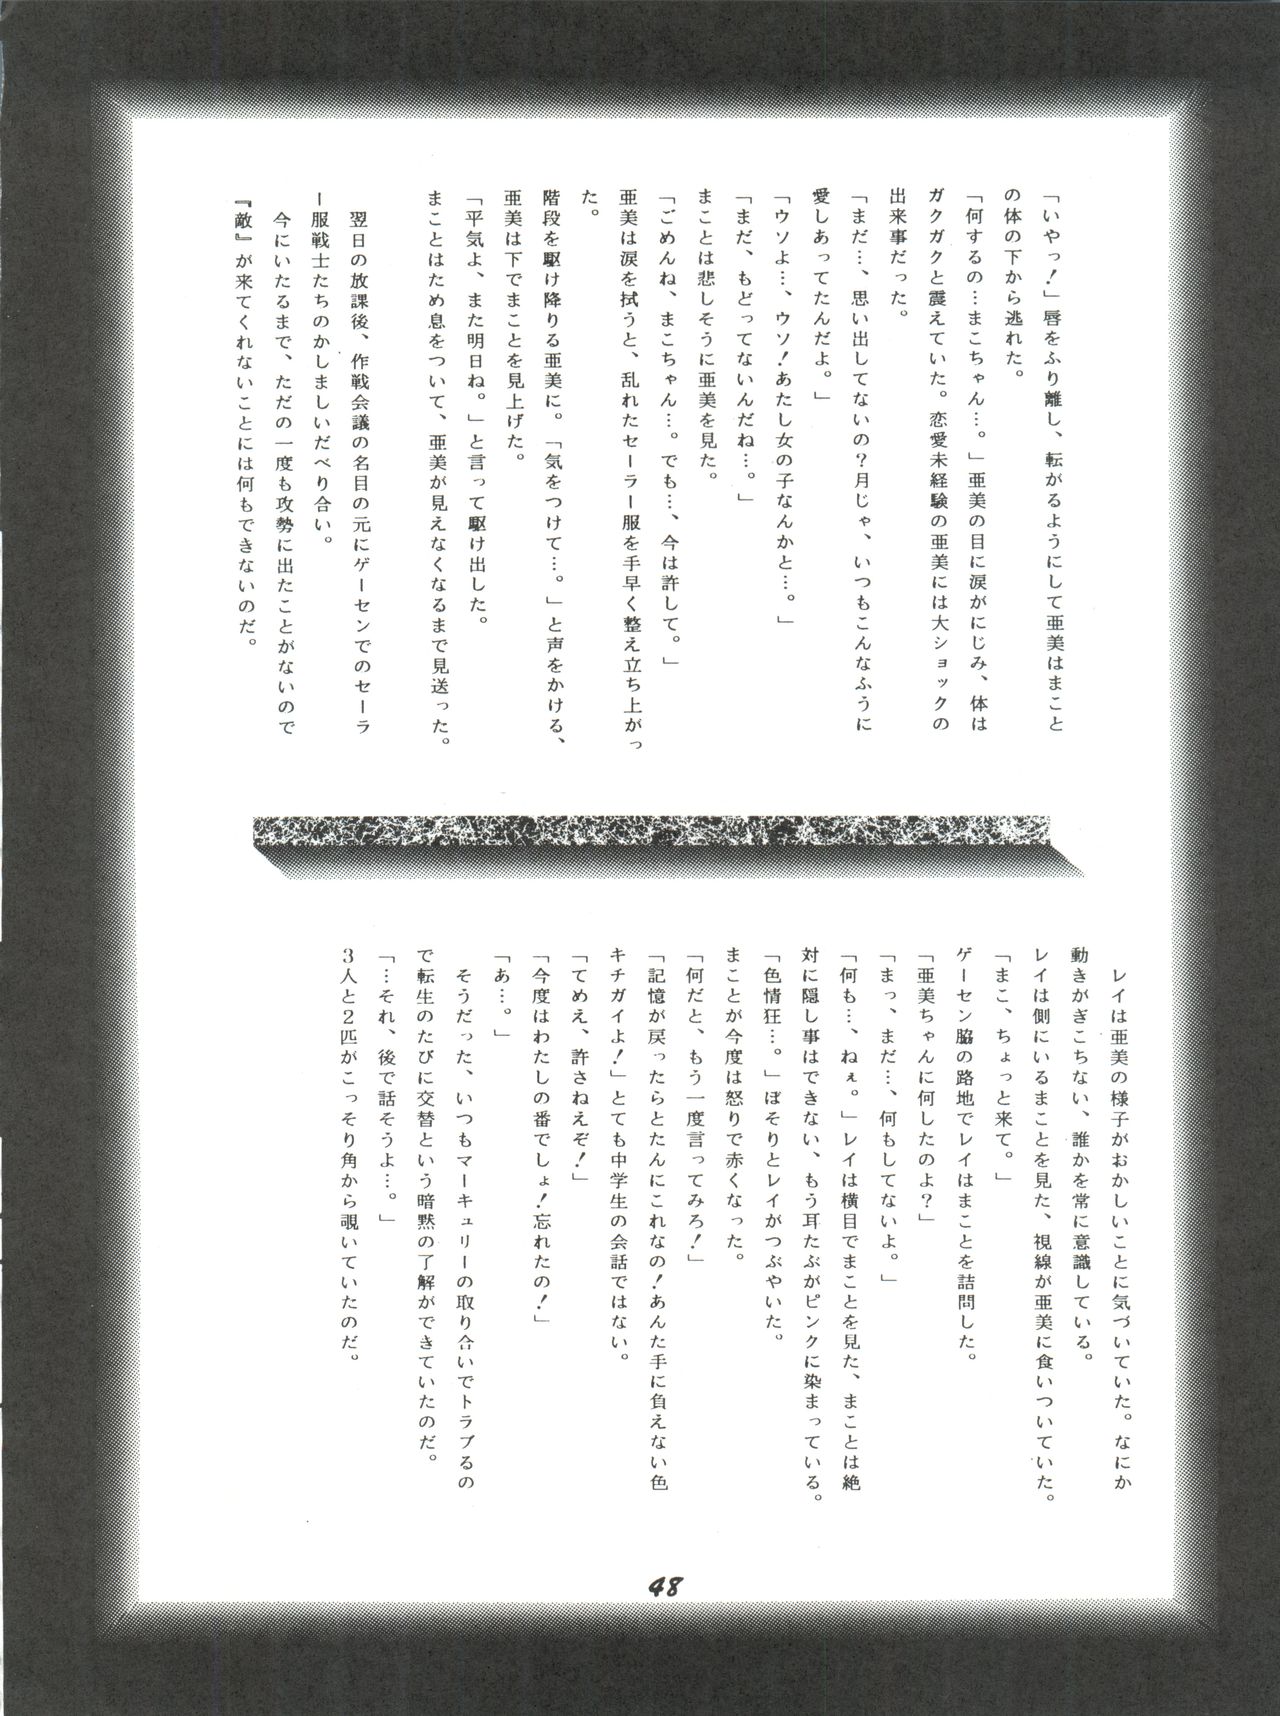 「いやっ！」唇をふり離し、転がるようにして亜美はまこと
の体の下から逃れた。
「何するの…まこちゃん…。」亜美の目に涙がにじみ、体は
ガクガクと震えていた。恋愛未経験の亜美には大ショックの
出来事だった。
「まだ…、思い出してないの？月じゃ、いつもこんなふうに
愛しあってたんだよ。」
「ウソよ…、ウソ！あたし女の子なんかと…。」
「まだ、もどってないんだね…。」
まことは悲しそうに亜美を見た。
「ごめんね、まこちゃん…。でも…、今は許して。」
亜美は涙を拭うと、乱れたセーラー服を手早く整え立ち上がっ
た。
階段を駆け降りる亜美に。「気をつけて…。」と声をかける、
亜美は下でまことを見上げた。
「平気よ、また明日ね。」と言って駆け出した。
まことはため息をついて、亜美が見えなくなるまで見送った。
翌日の放課後、作戦会議の名目の元にゲーセンでのセーラ
ー服戦士たちのかしましいだべり合い。
今にいたるまで、ただの一度も攻勢に出たことがないので
『敵』が来てくれないことには何もできないのだ。
レイは亜美の様子がおかしいことに気づいていた。なにか
動きがぎこちない、誰かを常に意識している。
レイは側にいるまことを見た、視線が亜美に食いついていた。
「まこ、ちょっと来て。」
ゲーセン脇の路地でレイはまことを詰問した。
「亜美ちゃんに何したのよ？」
「まっ、まだ…、何もしてないよ。」
「何も…、ねぇ。」レイは横目でまことを見た、まことは絶
対に隠し事はできない、もう耳たぶがピンクに染まっている。
「色情狂…。」ぼそりとレイがつぶやいた。
まことが今度は怒りで赤くなった。
「何だと、もう一度言ってみろ！」
「記憶が戻ったらとたんにこれなの！あんた手に負えない色
キチガイよ！」とても中学生の会話ではない。
「てめえ、許さねえぞ！」
「今度はわたしの番でしょ！忘れたの！」
「あ…。」
そうだった、いつもマーキュリーの取り合いでトラブるの
で転生のたびに交替という暗黙の了解ができていたのだ。
「…それ、後で話そうよ…。」
３人と２匹がこっそり角から覗いていたのだ。
48